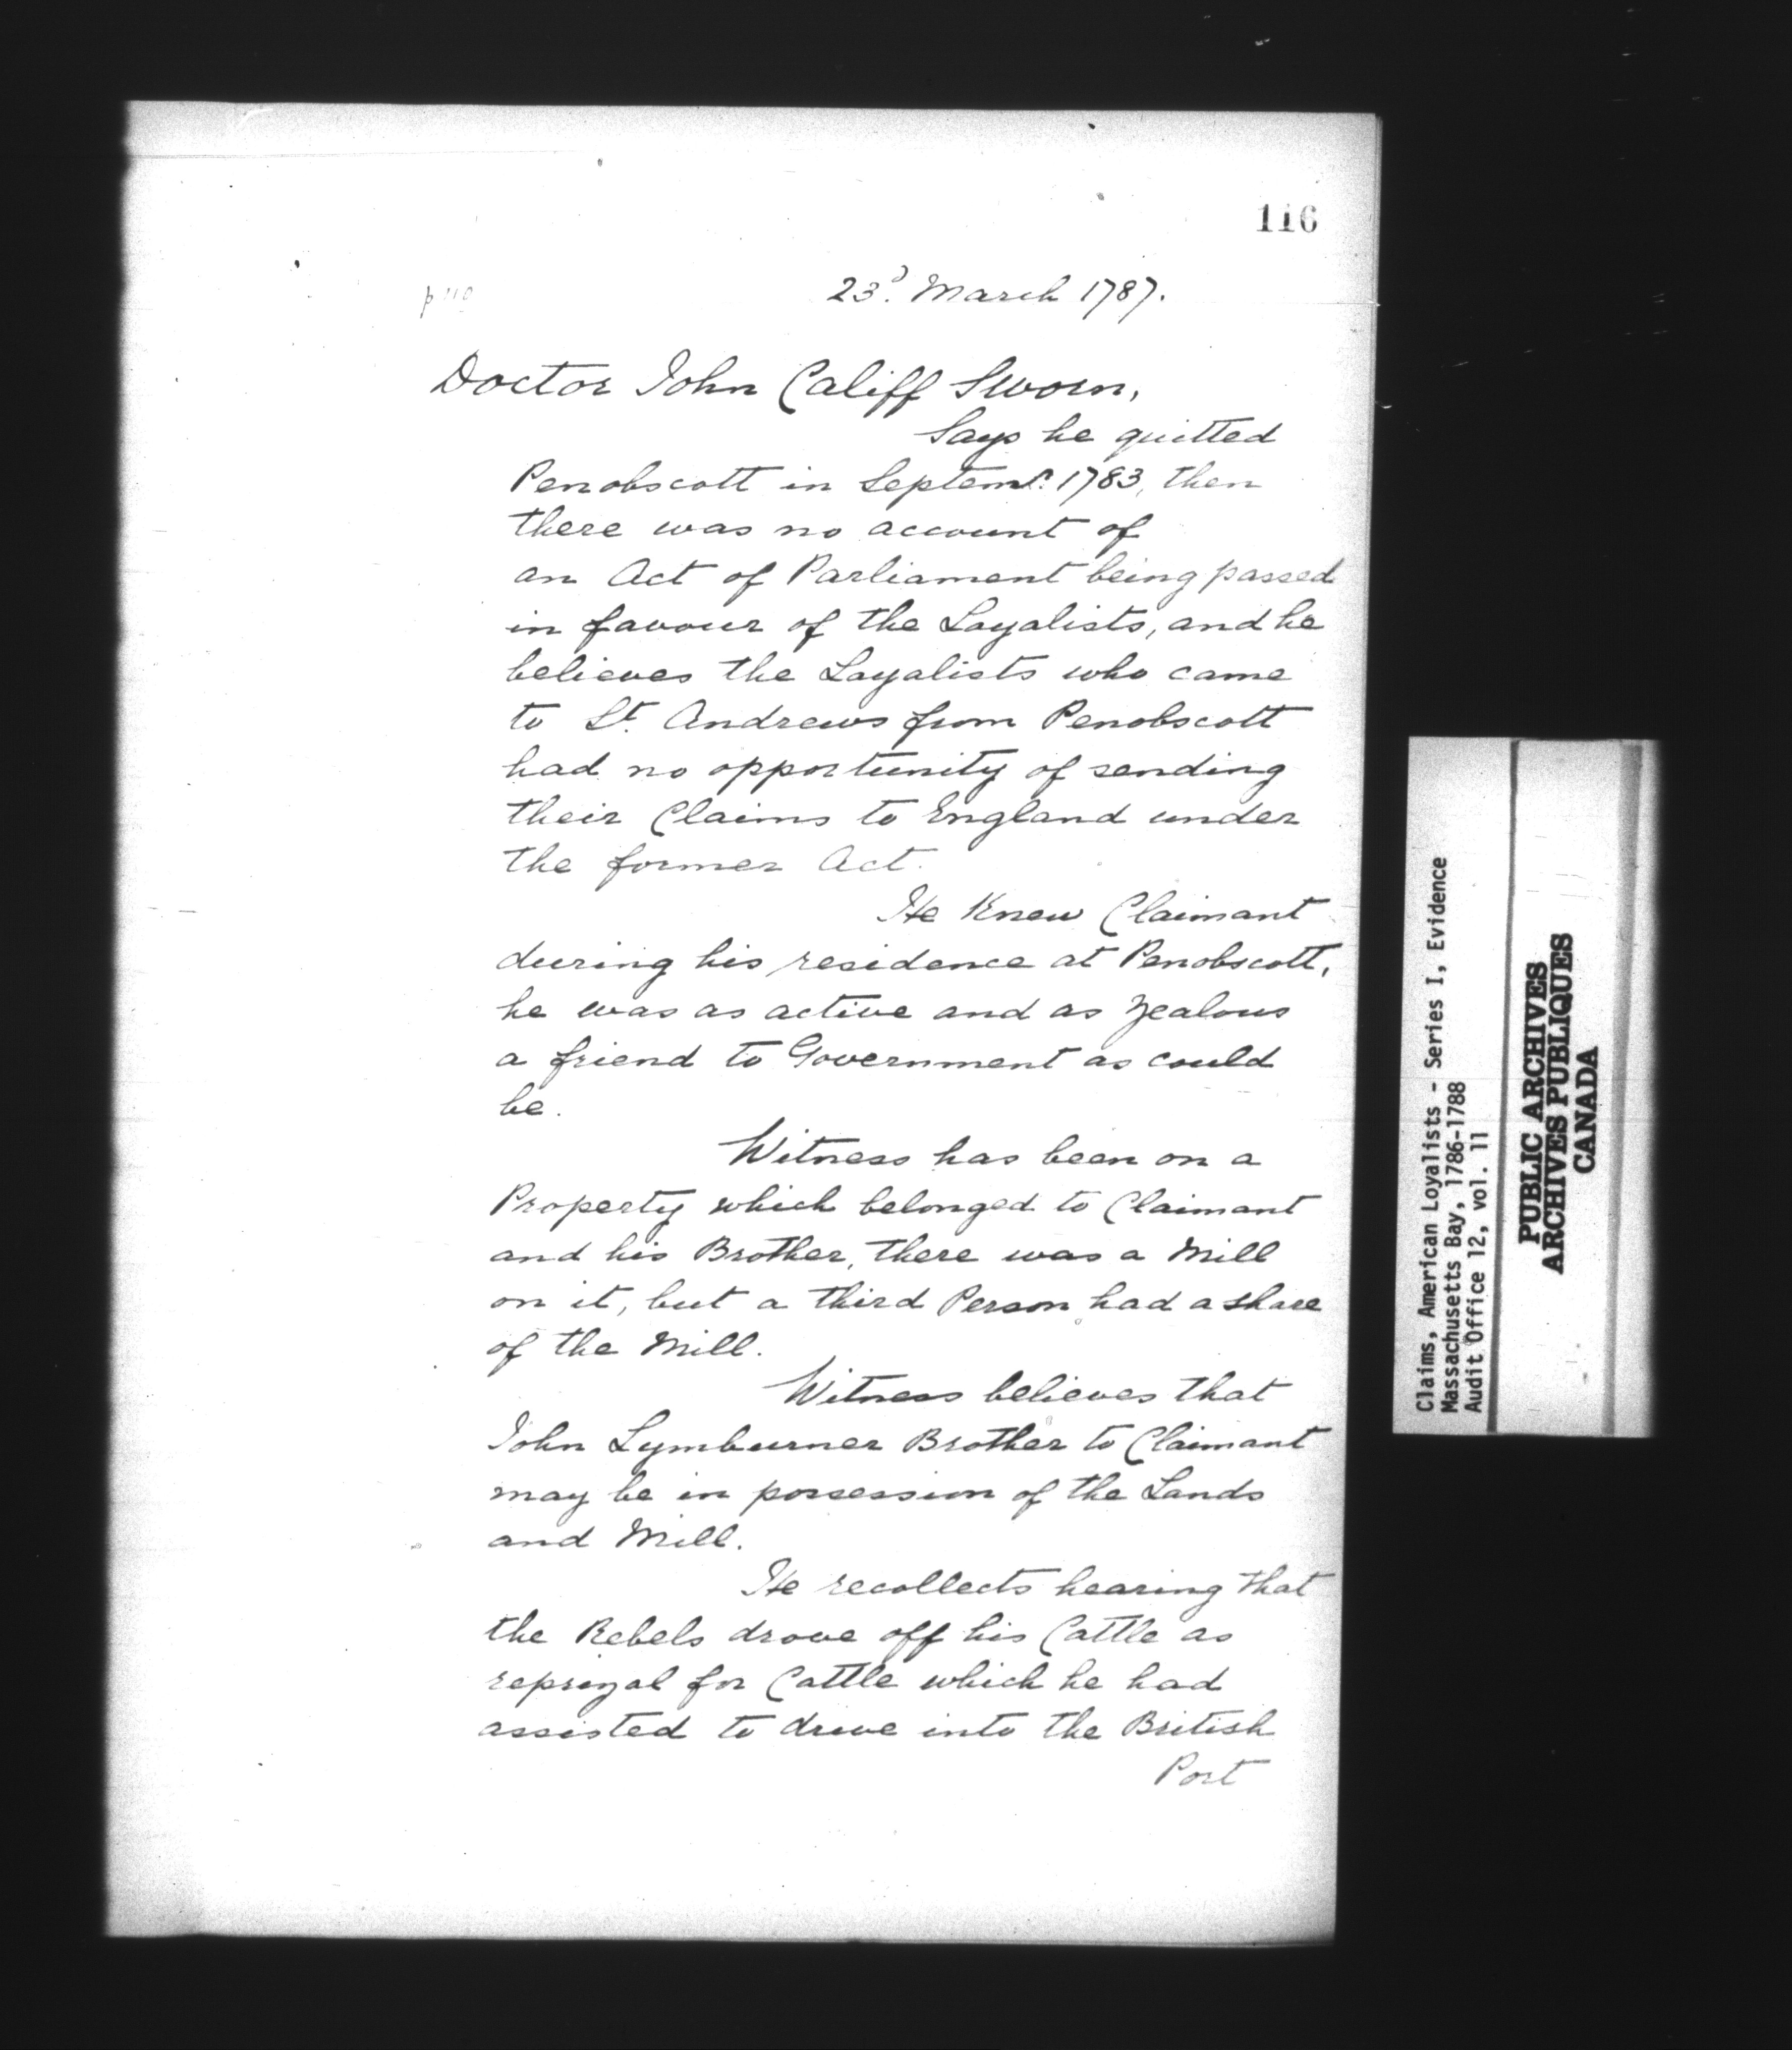 116
23d. March 1787.
Doctor John Califf Sworn,
Says he quitted
Penobscott in Septemr. 1783, then
there was no account of
an Act of Parliament being passed
in favour of the Loyalists, and he
believes the Loyalists who came
to St. Andrews from Penobscott
had no opportunity of sending
their Claims to England under
the former Act.
He Knew Claimant
during his residence at Penobscott,
he was as active and as zealous
a friend to Government as could
be.
Witness has been on a
Property which belonged to Claimant
and his Brother, there was a Mill
on it, but a third Person had a share
of the Mill.
Witness believes that
John Lymburner Brother to Claimant
may be in possession of the Lands
and Mill.
He recollects hearing that
the Rebels drove off his Cattle as
reprizal for Cattle which he had
assisted to drive into the British
Post
Claims, American Loyalists - Series I, Evidence
Massachusetts Bay, 1786-1788
Audit Office 12, vol. 11
PUBLIC ARCHIVES
ARCHIVES PUBLIQUES
CANADA